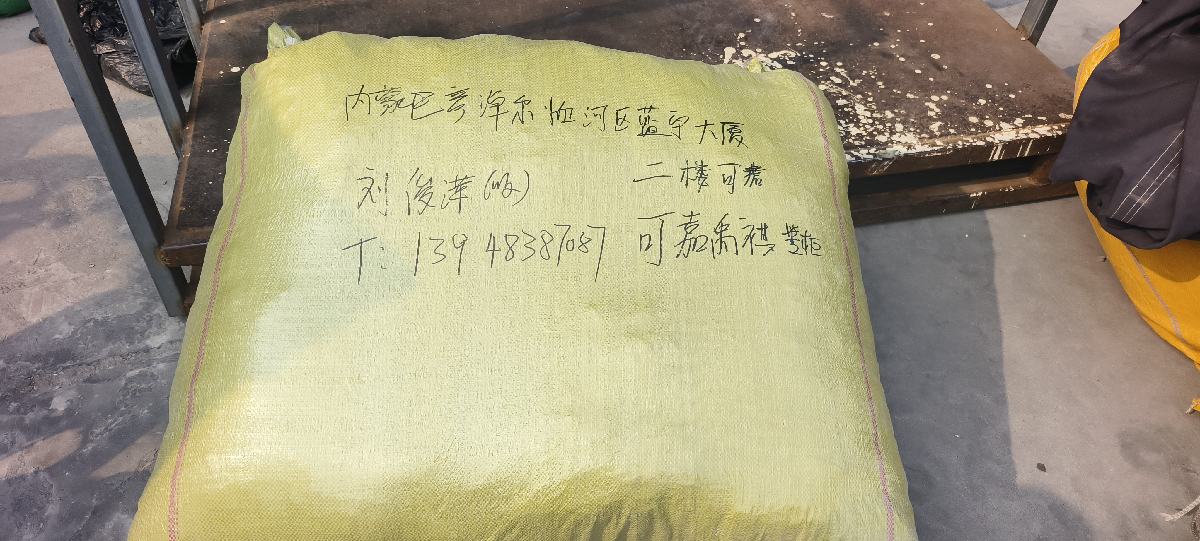 内蒙巴彦淖尔临河区蓝宇大厦
二楼可嘉
刘俊萍(收)
T: 13948387087
可嘉禹祺